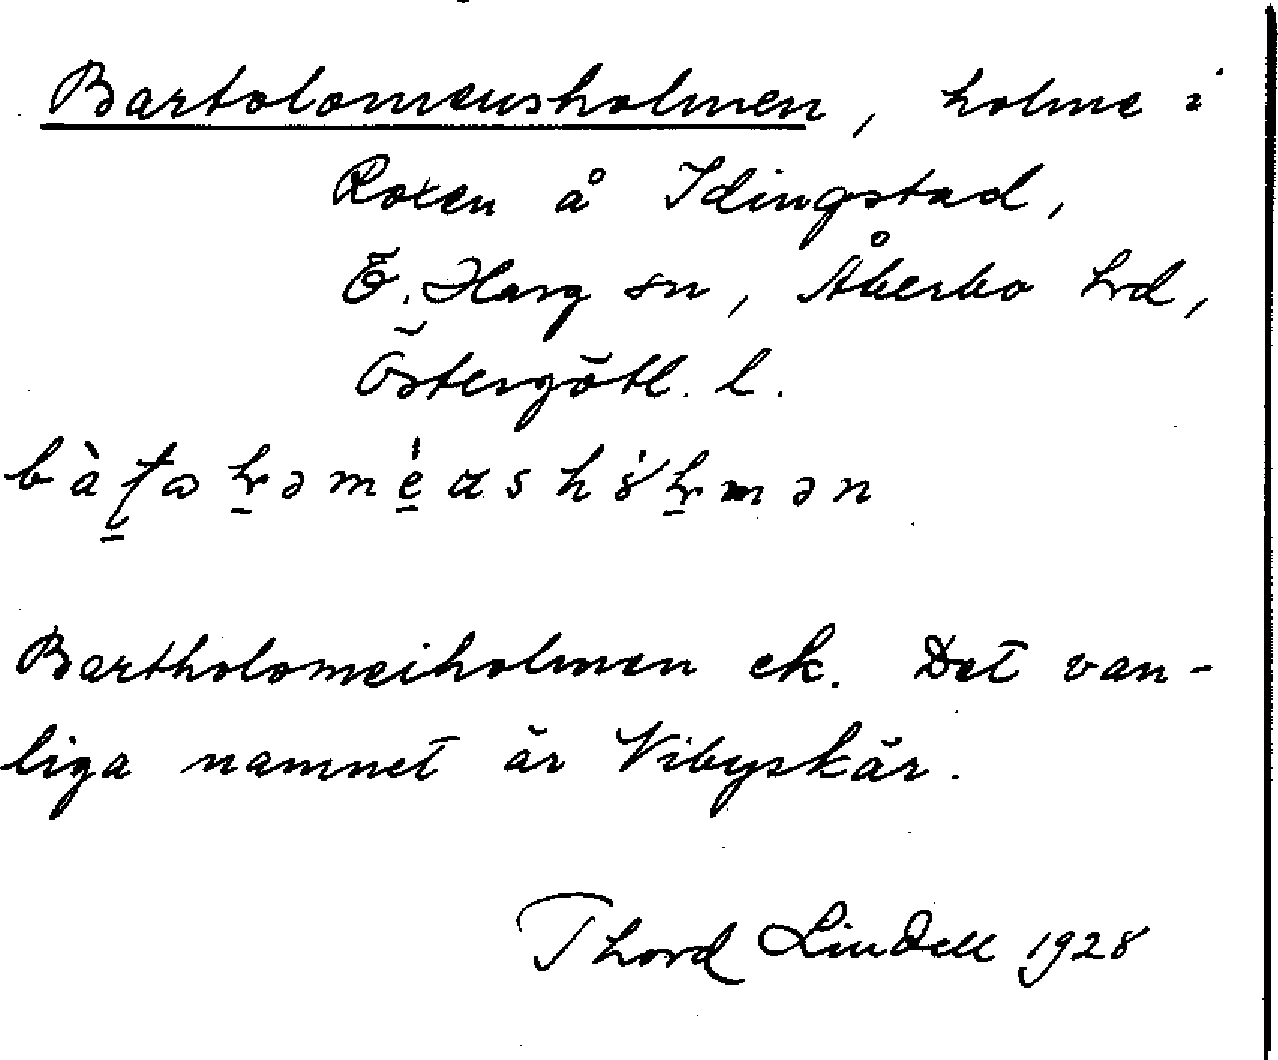 Bartolomeusholmen, holme i
Roxen å Idingstad,
Ö. Harg sn, Åkerbo hrd,
Östergötl. l.
Bartholomeiholmen ek. Det van-
liga namnet är Vibyskär.
Thord Lindell 1928